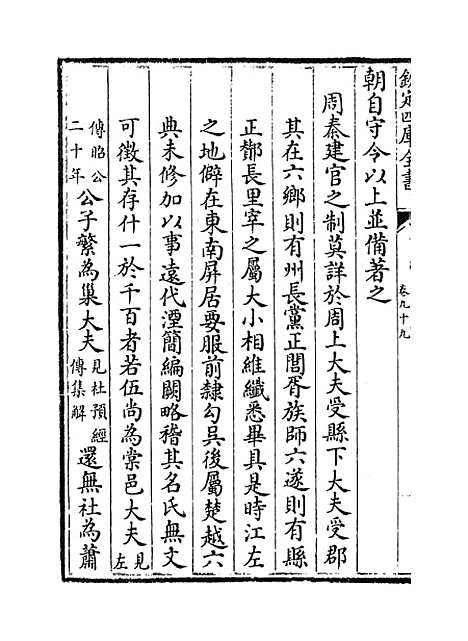 欽定四庫全書
卷九十九
朝自守令以上並備著之
周秦建官之制莫詳於周上大夫受縣下大夫受郡
其在六鄉則有州長黨正閭胥族師六遂則有縣
正酇長里宰之屬大小相維纖悉畢具是時江左
之地僻在東南屏居要服前隸勾吳後屬楚越六
典未修加以事遠代湮簡編闕略稽其名氏無文
可徵其存什一於千百者若伍尚為棠邑大夫見左
傳昭公二十年公子繁為巢大夫見杜預經傳集解還無社為蕭